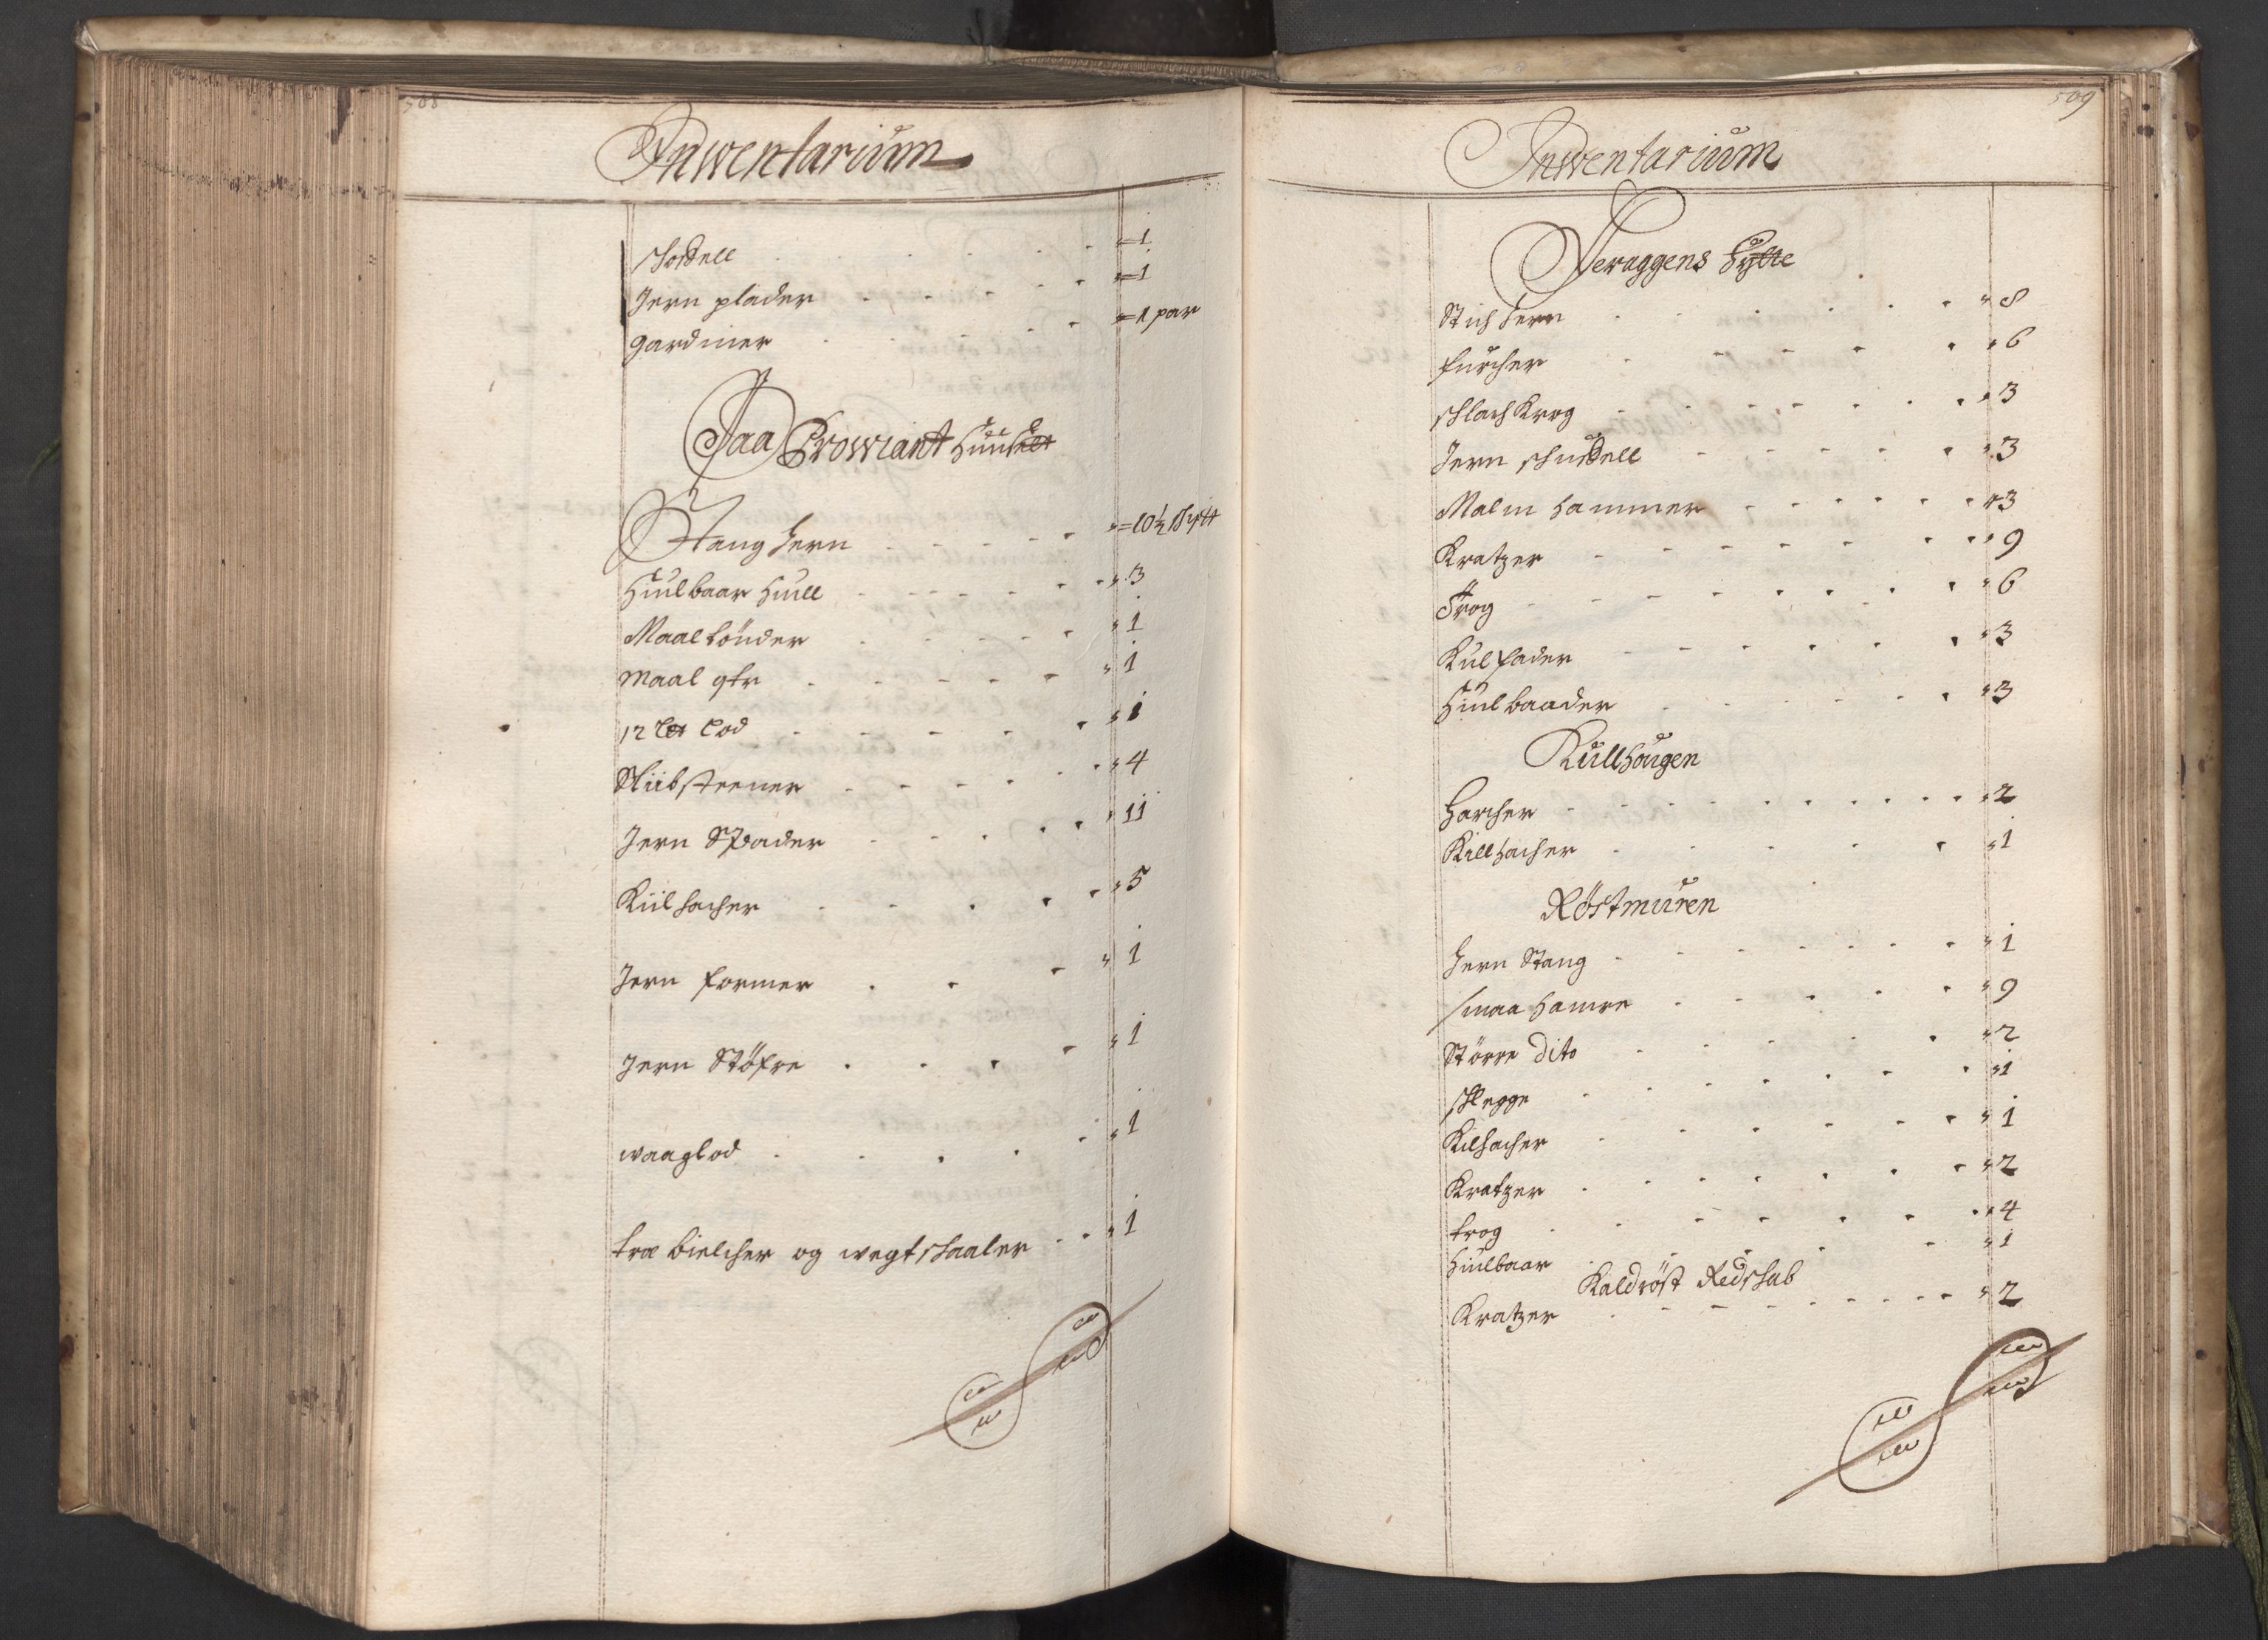 508
Inwentarium
skoffell - - - - - - = 1
Jern plader - - - - - = 1
gardiner - - - - = 1 par
Paa Prowiant Huuset
Stang Jern - - - - - = 10½
Hiulbaar Hiull - - - - - - 3
Maal tönder - - - - - 1
Maal qtr - - - - - 1
12 lod - - - - - 1
Sliibsteener - - - - - 4
Jern Spader - - - - - 11
Kiilhacher - - - - - 5
Jern former - - - 1
Jern Stöfre - - - - 1
waaglod - - - - - 1
træ bielcher og wegtskaaler - - - 1
509
Inwentarium
Feraggens Hytte
Stich Jern - - - - - 8
furcher - - - - - 6
schlach Krog - - - - - - 3
Jern skuffell - - - - - 3
Malm Hammer - - - - - - 3
Kratzer - - - - - - 9
Trog - - - - - - - - 6
Kulfader - - - - - - 3
Hiulbaader - - - - - 3
Kullhougen
Harcher - - - - - - - - - 2
Killhacher - - - - - 1
Röstmuren
Jern Stang - - - - - - 1
smaa Hamre - - - - - 9
Större dito - - - - - 2
schlegge - - - - - - 1
Kilhacher - - - - - - 1
Kratzer - - - - - - 2
trog - - - - - - - 4
Hiulbaar - - - - - 1
Kaldröst Redskab
Kratzer - - - - - - - - 2